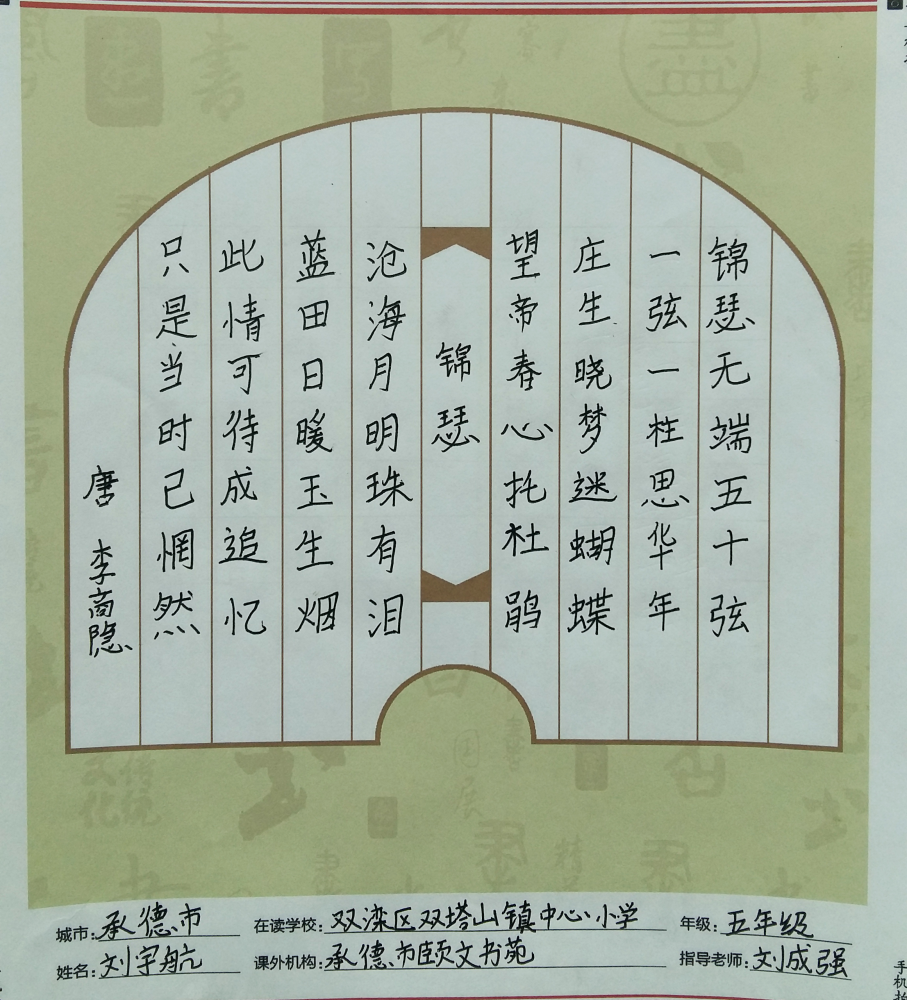 锦瑟无端五十弦
一弦一柱思华年
庄生晓梦迷蝴蝶
望帝春心托杜鹃
锦瑟
沧海月明珠有泪
蓝田日暖玉生烟
此情可待成追忆
只是当时已惘然
唐 李商隐
城市:承德市 在读学校:双滦区双塔山镇中心小学 年级:五年级
姓名:刘宇航 课外机构:承德市颐文书苑 指导老师:刘成强